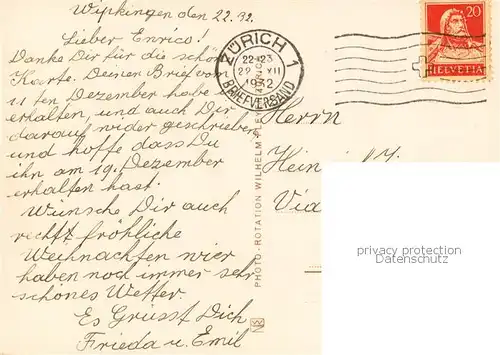 Wipkingen den 22.32.
Lieber Enrico!
Danke Dir für die schöne
Kaarte. Deinen Brief vom
11 ten Dezember habe ich
erhalten, und auch Dir
darauf wider geschrieben
und hoffe dass Du
ihn am 19. Dezember
erhalten hast.
Wünsche Dir auch
recht fröhliche
Weihnachten wier
haben noch immer sehr
schönes Wetter.
Es Grüsst Dich
Frieda u. Emil
PHOTO-ROTATION WILHELM PLEY
ZÜRICH 1
22-23
22 XII
1932
BRIEFVERSAND
20
HELVETIA
Herrn
Via
privacy protection
Datenschutz